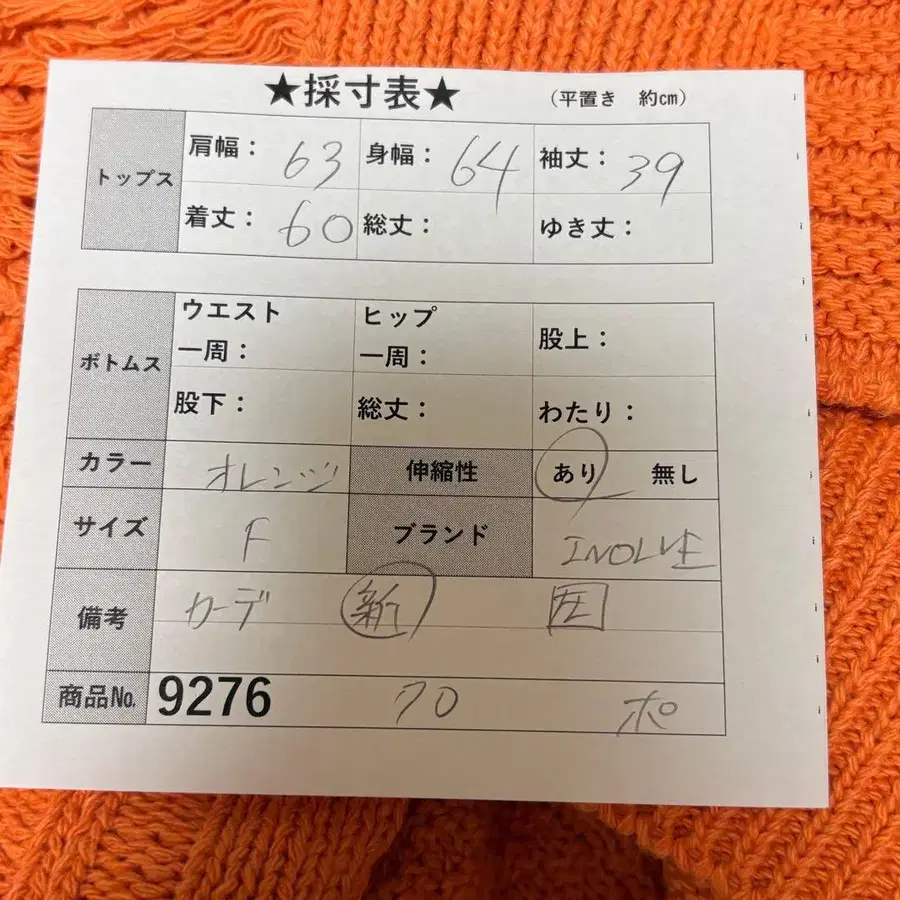 ★採寸表★ (平置き 約㎝)
トップス 肩幅： 63 身幅： 64 袖丈： 39
着丈： 60 総丈： ゆき丈：
ボトムス ウエスト一周： ヒップ一周： 股上：
股下： 総丈： わたり：
カラー オレンジ 伸縮性 あり 無し
サイズ F ブランド INOLVE
備考 カーデ 新 圧
商品№ 9276 70 ポ